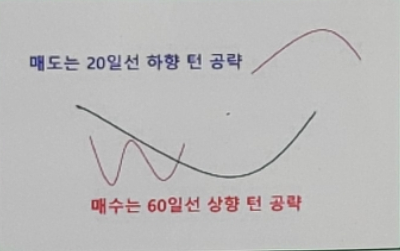 매도는 20일선 하향 턴 공략
매수는 60일선 상향 턴 공략